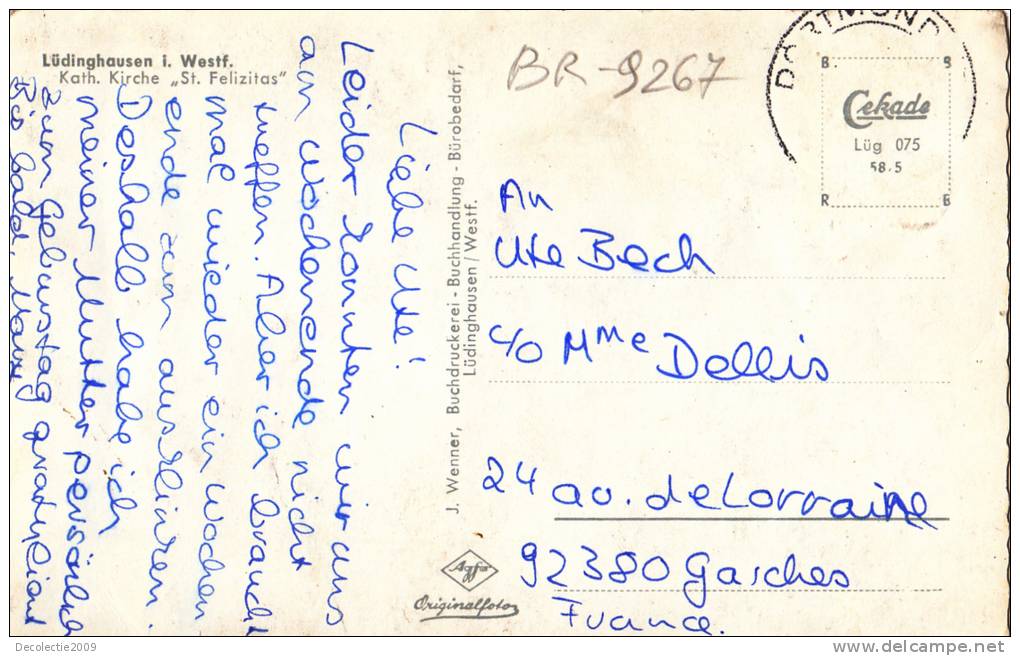 Lüdinghausen i. Westf.
Kath. Kirche „St. Felizitas"
BR-9267
DORTMUND
B. S
Cekade
Lüg 075
58.5
R G
Liebe Ute!
Leider konnten wir uns
am Wochenende nicht
treffen. Aber ich brauch
mal wieder ein Wochen
ende zum ausklinken.
Deshalb habe ich
meiner Mutter persönlich
zum Geburtstag gratuliert
Bis bald,
J. Wenner, Buchdruckerei - Buchhandlung - Bürobedarf,
Lüdinghausen / Westf.
Agfa
Originalfoto
An
Ute Bech
c/o Mme Dellis
24 av. de Lorraine
92380 Garches
France.
Decolectie2009
delcampe.net